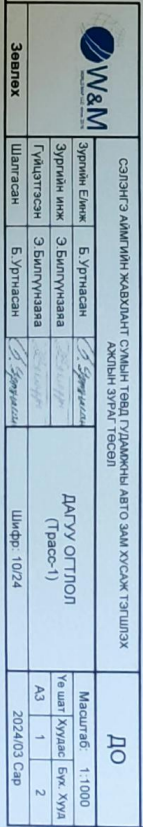 СЭЛЭНГЭ АЙМГИЙН ЖАВХЛАНТ СУМЫН ТӨВД ГУДАМЖНЫ АВТО ЗАМ ХУСАЖ ТЭГШЛЭХ
АЖЛЫН ЗУРАГ ТӨСӨЛ
ДО
W&M
Зургийн Е/инж Б.Уртнасан
Зургийн инж Э.Билгүүнзаяа
Гүйцэтгэсэн Э.Билгүүнзаяа
Шалгасан Б.Уртнасан
Зөвлөх
ДАГУУ ОГТЛОЛ
(Трасс-1)
Шифр: 10/24
Масштаб: 1:1000
Үе шат Хуудас Бүх. Хууд
А3 1 2
2024/03 Сар